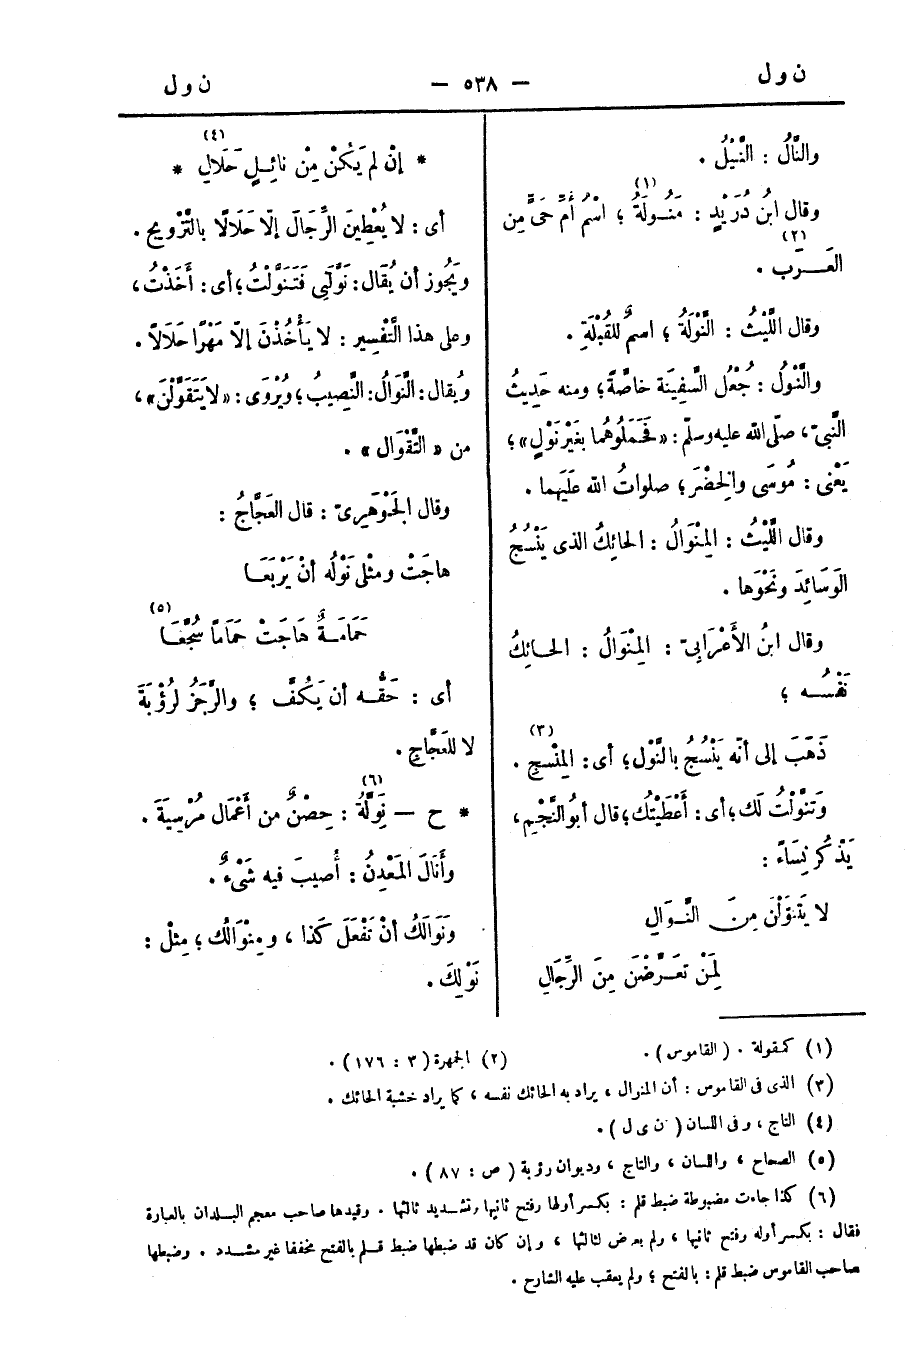 ن و ل
— ٥٣٨ —
ن و ل
والنَّالُ : النَّيْلُ .
وقال ابنُ دُرَيْدٍ : مَنُولَةُ (١) ؛ اسْمُ أُمِّ حَىٍّ مِن
العَـــرَب (٢) .
وقال اللَّيْثُ : النَّوْلَةُ ؛ اسمٌ للقُبْلَةِ .
والنَّوْلُ : جُعْلُ السَّفِينَة خاصَّةً ؛ ومنه حَدِيثُ
النَّبىّ ، صلّى الله عليه وسلّم : « فَحَمَلُوهُما بغَيْر نَوْلٍ » ؛
يَعْنى : مُوسَى والخِضْرَ ؛ صلواتُ الله عَلَيهما .
وقال اللَّيْثُ : المِنْوَالُ : الحائِكُ الذى يَنْسُجُ
الوَسَائِدَ ونَحْوَها .
وقال ابنُ الأَعْرَابىّ : المِنْوَالُ : الحـائِكُ
نَفْسُــه ؛
ذَهَبَ إلى أنّه يَنْسُجُ بالنَّوْل ؛ أى : المِنْسجِ (٣) .
وتَنَوَّلْتُ لَك ؛ أى : أَعْطَيْتُك ؛ قال أبُو النَّجْمِ ،
يَذْكُر نِسَاءً :
لا يَتَنَوَّلْنَ مِنَ النَّـوَالِ
لِمَنْ تعَـرَّضْنَ مِنَ الرِّجَالِ
* إنْ لم يَكُنْ مِنْ نائِـلٍ حَلَالِ (٤) *
أى : لا يُعْطِينَ الرِّجَالَ إلّا حَلَالًا بالتَّزْويج .
ويَجُوز أن يُقَال : نَوَّلَنِى فَتَنَوَّلْتُ ؛ أى : أَخَذْتُ ،
وعلى هذا التَّفْسِير : لا يَأْخُذْنَ إلّا مَهْرًا حَلَالًا .
ويُقال : النَّوَالُ : النَّصِيبُ ؛ ويُرْوَى : « لا يَتَقَوَّلْنَ » ،
من « التَّقْوَال » .
وقال الجَوْهَرِىّ : قال العَجَّاجُ :
هاجَتْ ومثْلى نَوْلُه أنْ يَرْبَعَـا
حَمَامَـةٌ هَاجَتْ حَمَاماً سُجَّعَـا (٥)
أى : حَقُّـه أن يَكُفَّ ؛ والرَّجَزُ لرُؤْبَةَ
لا للعَجَّاجِ .
* ح — نِوَلَّةُ (٦) : حِصْنٌ من أَعْمَال مُرْسِيَةَ .
وأَنَالَ المَعْدِنُ : أُصِيبَ فيه شَىْءٌ .
ونَوَالَكُ أنْ تَفْعَلَ كَذا ، ومِنْوَالُك ؛ مِثلْ :
نَوْلِكَ .
(١) كمقولة . ( القاموس ) .
(٢) الجمهرة ( ٣ : ١٧٦ ) .
(٣) الذى فى القاموس : أن المنوال ، يراد به الحائك نفسه ، كما يراد خشبة الحائك .
(٤) التاج ، وفى اللسان ( ن ى ل ) .
(٥) الصحاح ، واللسان ، والتاج ، وديوان رؤبة ( ص : ٨٧ ) .
(٦) كذا جاءت مضبوطة ضبط قلم : بكسر أولها وفتح ثانيها وتشـديد ثالثها . وقيدها صاحب معجم البـلدان بالعبارة
فقال : بكسر أوله وفتح ثانيها ، ولم يعرض لثالثها ، وإن كان قد ضبطها ضبط قـلم بالفتح مخففا غير مشدد . وضبطها
صاحب القاموس ضبط قلم : بالفتح ؛ ولم يعقب عليه الشارح .